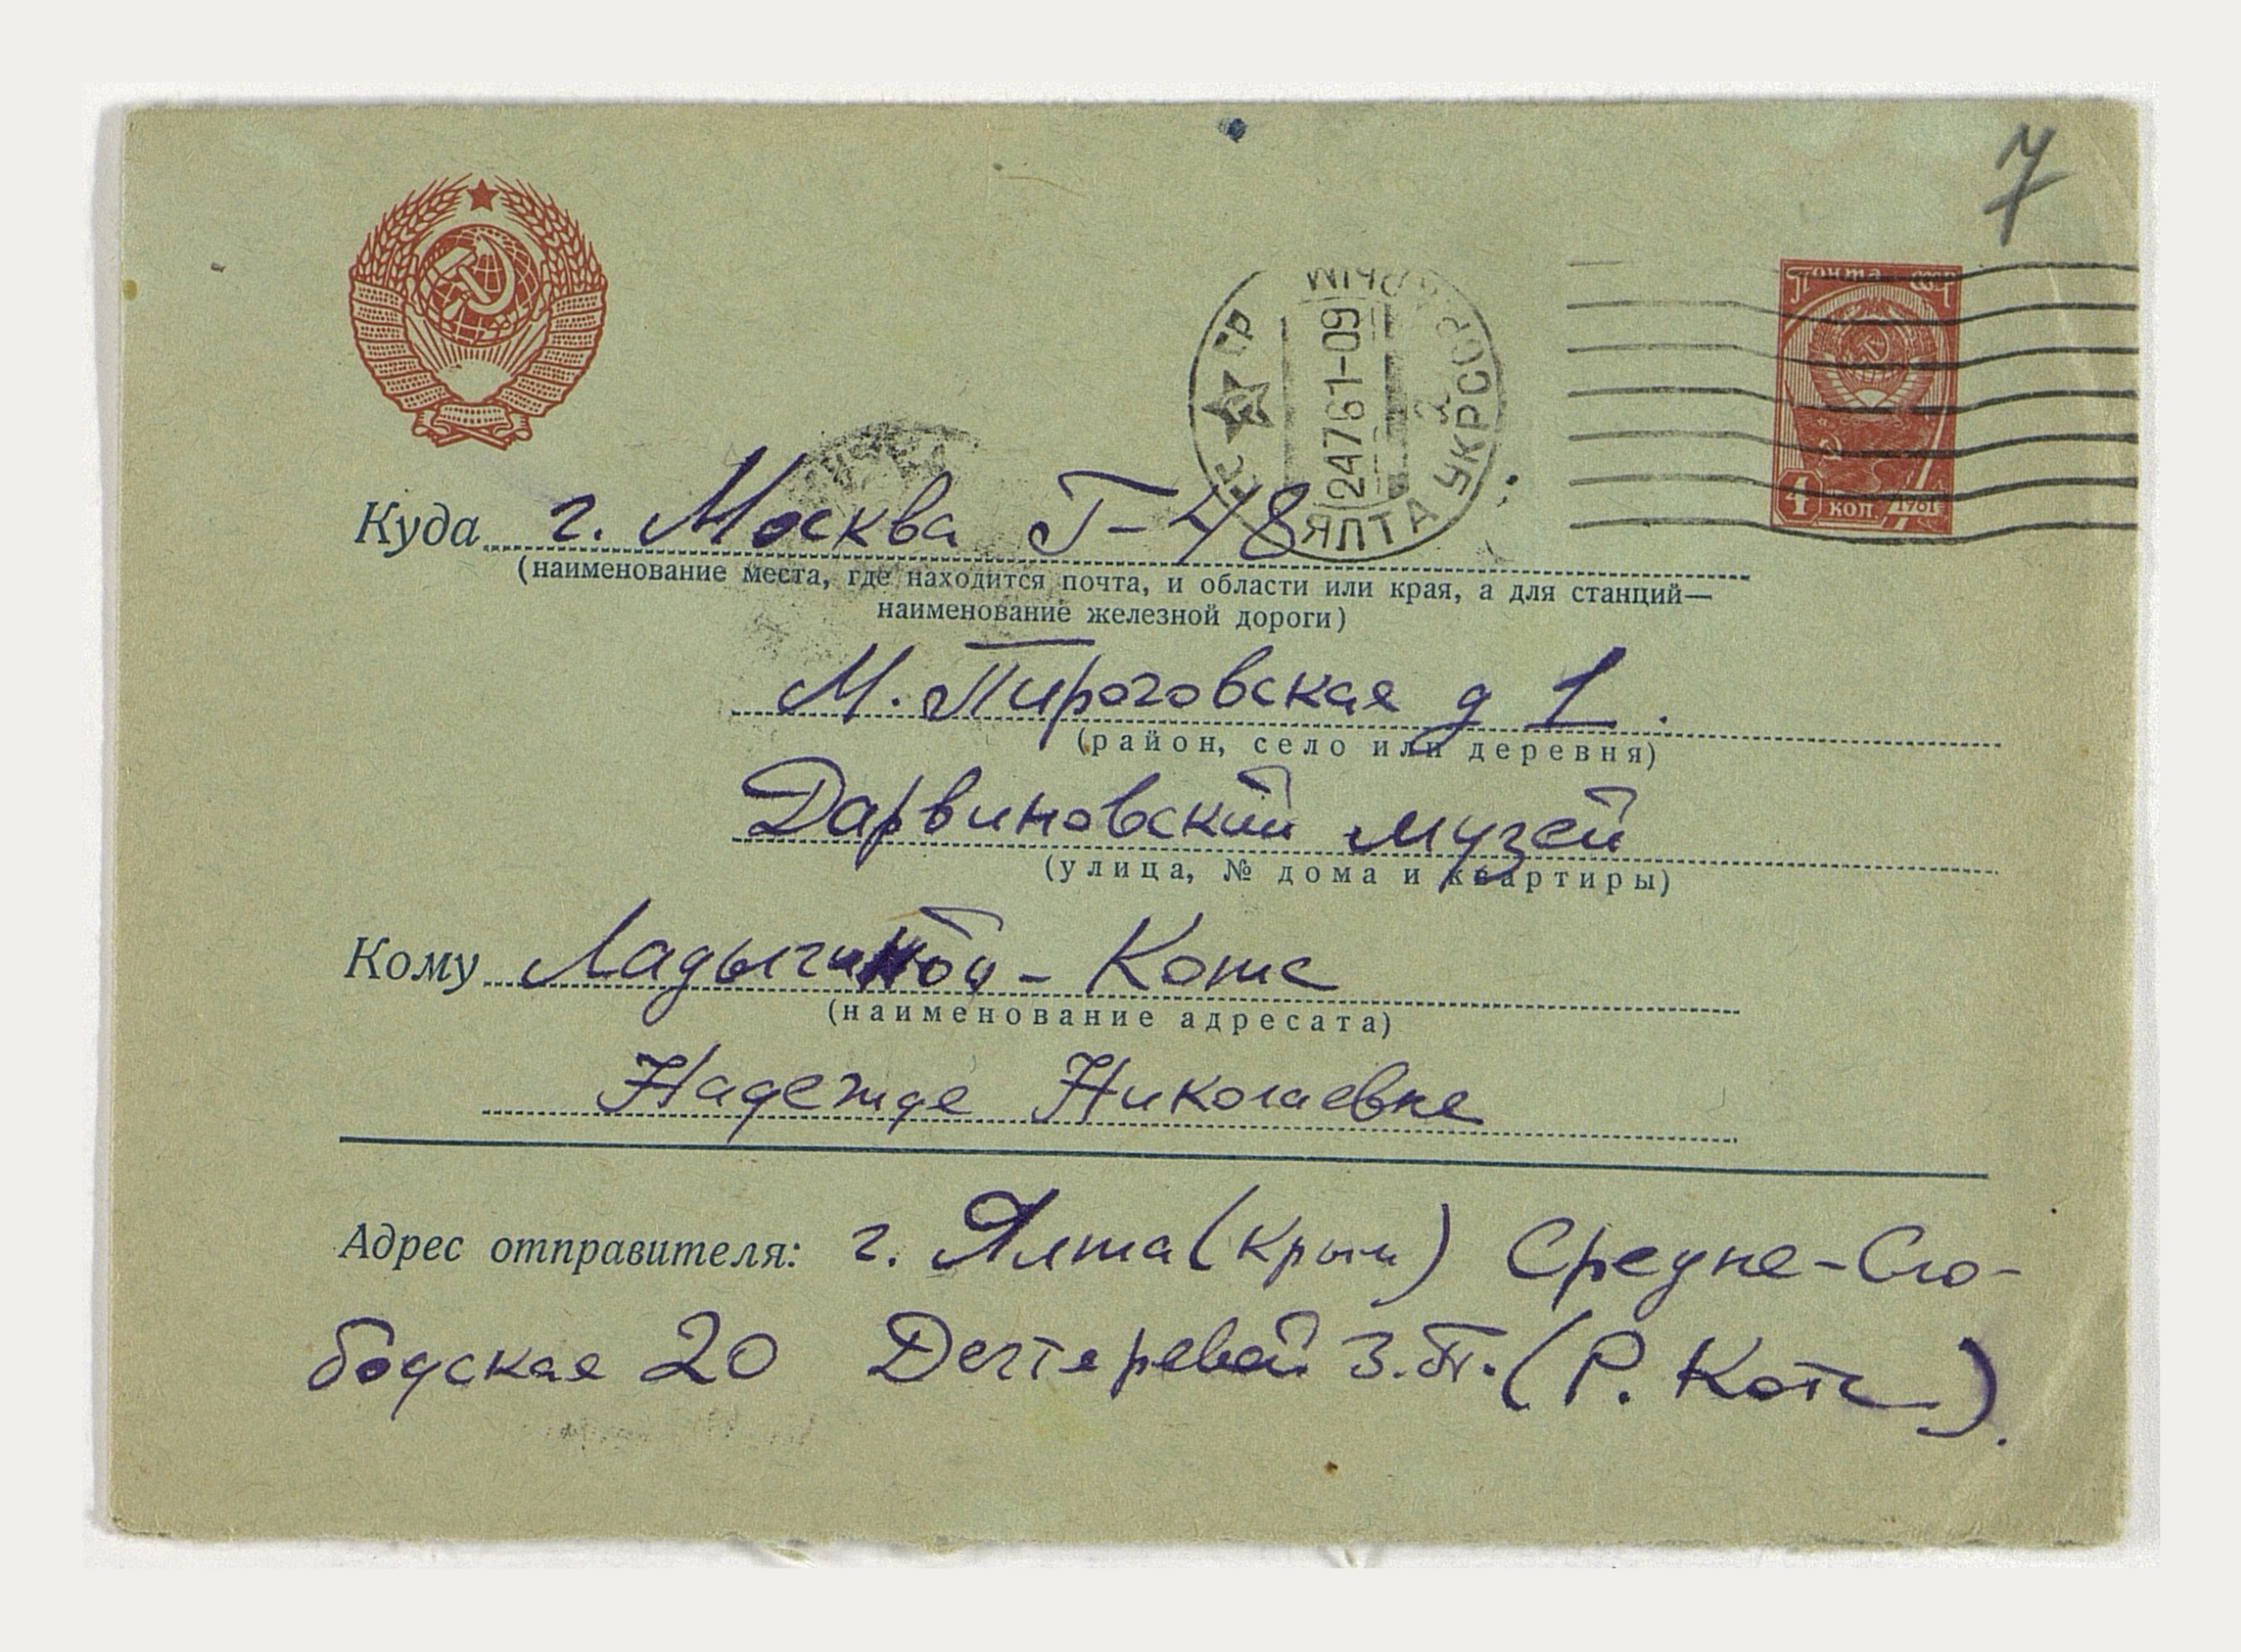 7
Почта СССР
4 коп. 1961
ЯЛТА УКРССР
24761-09
Куда г. Москва Г-48
(наименование места, где находится почта, и области или края, а для станций—
наименование железной дороги)
М. Пироговская д 1.
(район, село или деревня)
Дарвиновский музей
(улица, № дома и квартиры)
Кому Ладыгиной - Котс
(наименование адресата)
Надежде Николаевне
Адрес отправителя: г. Ялта (Крым) Средне-Сло-
бодская 20 Дегтеревой З.П. (Р. Котс).